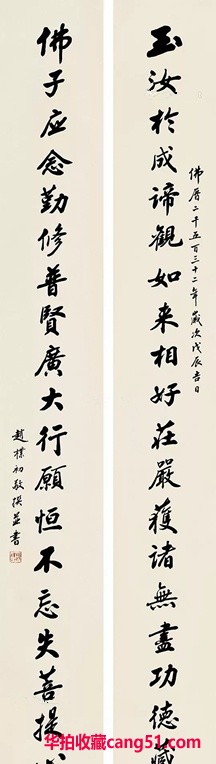 玉汝於成諦觀如来相好莊嚴獲諸無盡功德藏
佛曆二千五百三十二年歲次戊辰吉日
佛子应念勤修普賢廣大行願恒不忘失菩提
趙樸初敬撰并書
华拍收藏cang51.com